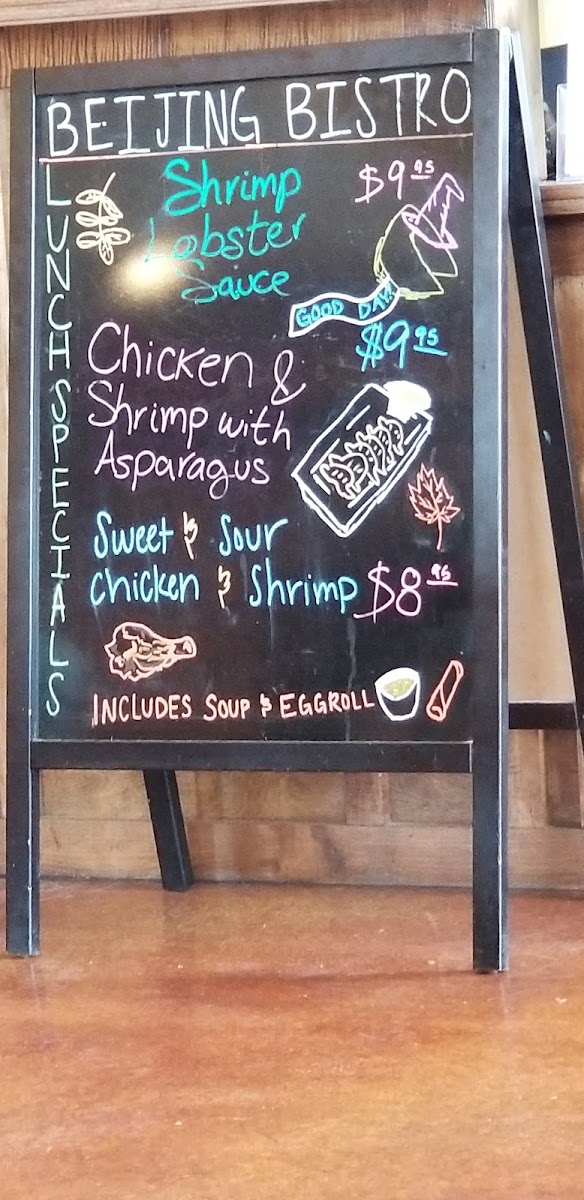 BEIJING BISTRO
LUNCH SPECIALS
Shrimp $9.95
Lobster
Sauce
GOOD DAY!
$9.95
Chicken &
Shrimp with
Asparagus
Sweet & Sour
Chicken & Shrimp $8.95
INCLUDES SOUP & EGGROLL